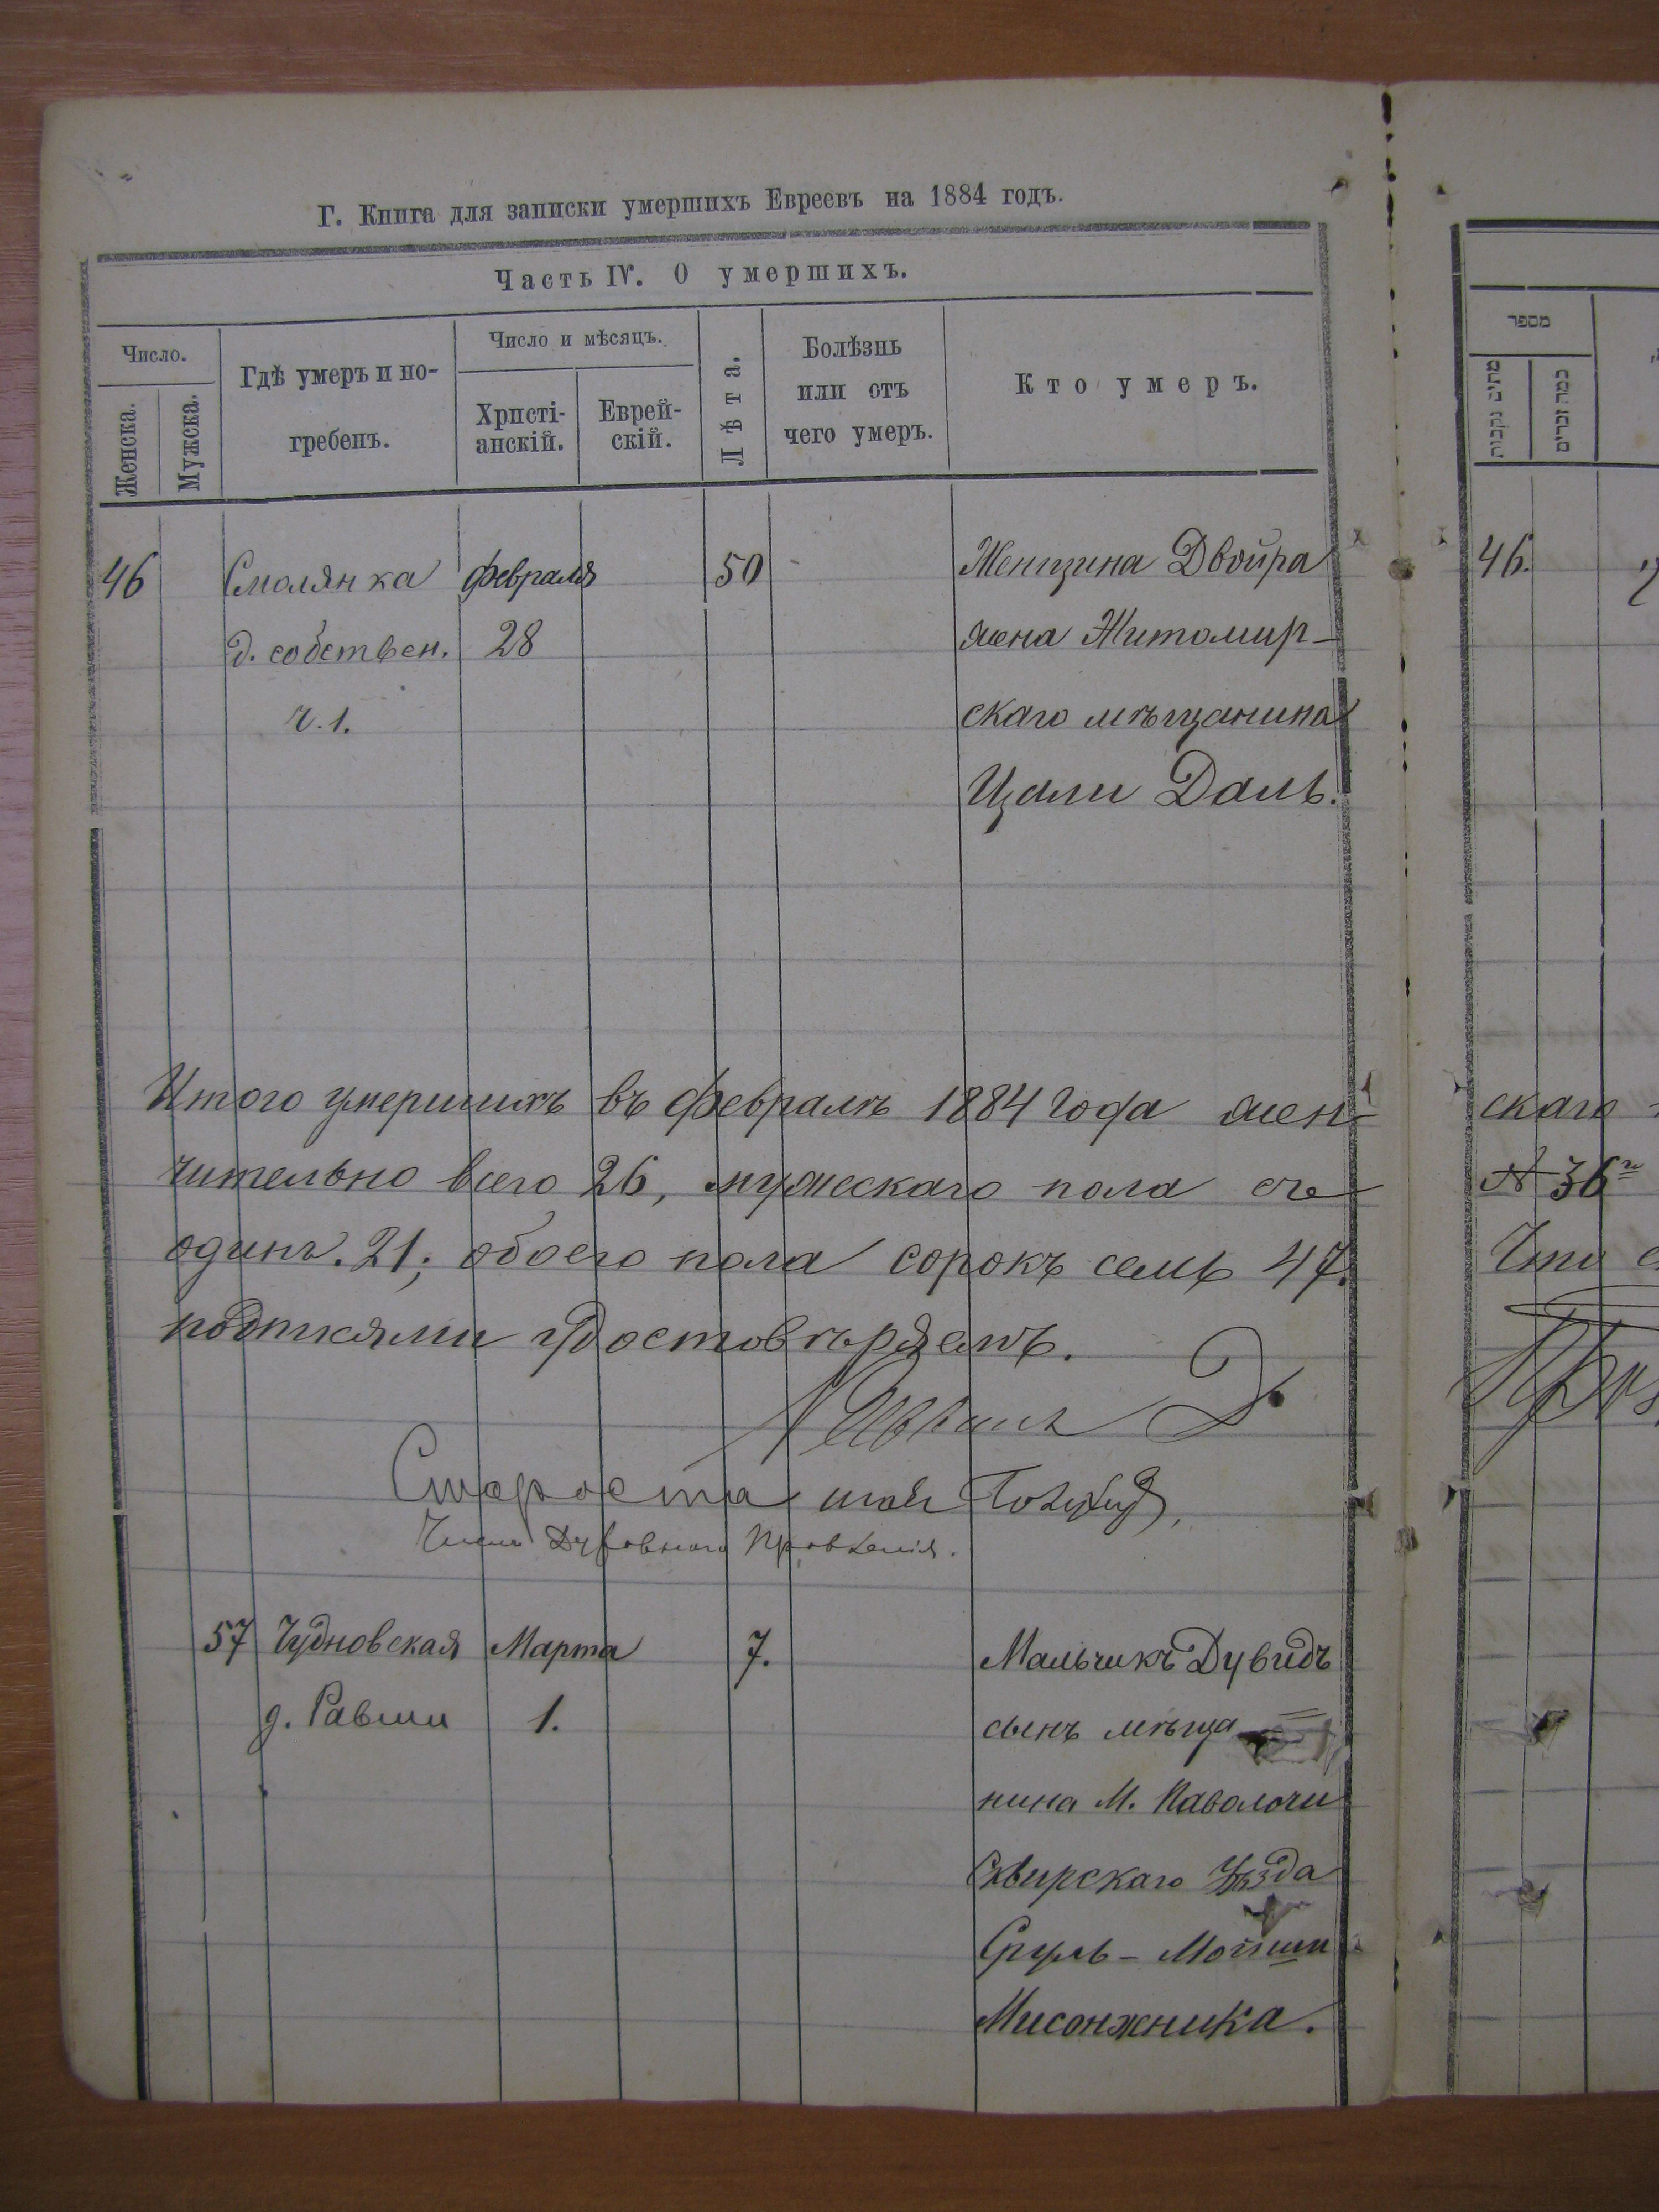 Г. Книга для записки умершихъ Евреевъ на 1884 годъ.
Часть IV. О умершихъ.
Число.
Женска.
Мужска.
Гдѣ умеръ и по-
гребенъ.
Число и мѣсяцъ.
Христі-
анскій.
Еврей-
скій.
Лѣта.
Болѣзнь
или отъ
чего умеръ.
Кто умеръ.
46 Смолянка Февраля 50 Женщина Двойра
д. собствен. 28 жена Житомир-
ч. 1. скаго мѣщанина
Цали Даль.
Итого умершихъ въ Февралѣ 1884 года жен-
чительно всего 26, мужескаго пола съ
одинъ. 21; обоего пола сорокъ семь 47.
подписями удостовѣряемъ.
Староста
Членъ Духовного Правленія.
57 Чудновская Марта 7. Мальчикъ Дувидъ
д. Равши 1. сынъ мѣща=
нина М. Паволочи
Сквирскаго Уѣзда
Сруль-Мойши
Мисонжника.
מספר
מתים נקבות
כמה זכרים
46.
скаго
№ 36
Что